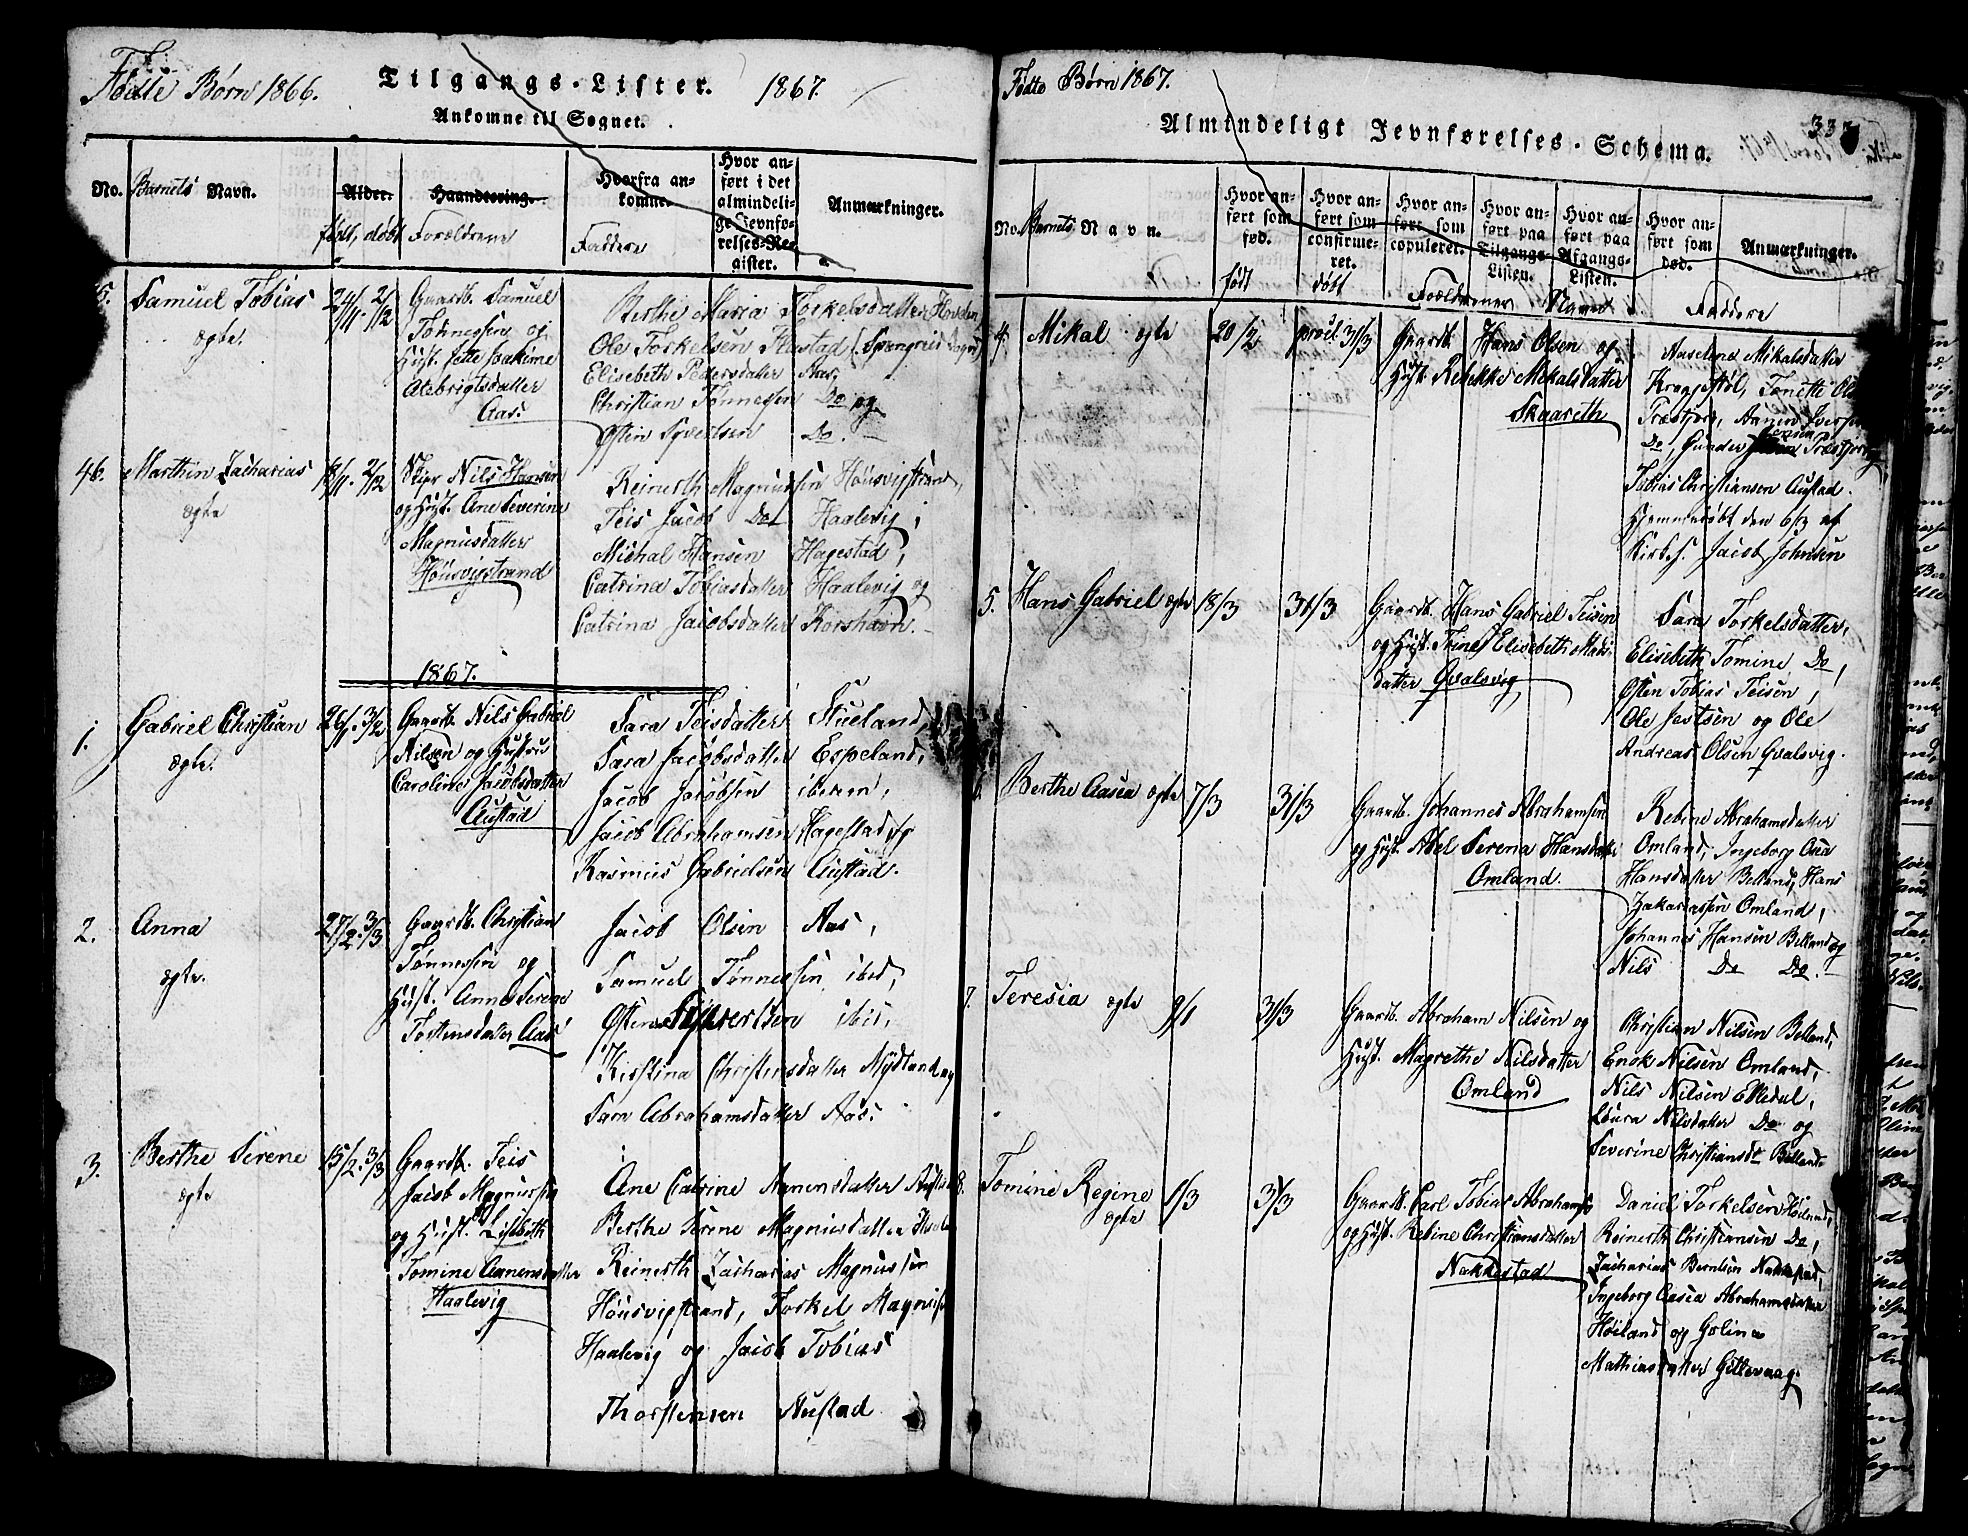 Fødte Børn 1866.
Tilgangs-Lister.
1867.
Ankomne til Sognet.
No.
Barnets Navn.
Alder.
født, døbt
Haandtering.
Forældrene
Hvorfra an-
komne.
Faddere
Hvor an-
ført i det
almindeli-
ge Jevnfø-
relses-Re-
gister.
Anmærkninger.
5.
Samuel Tobias
ægte.
24/11. 2/12
Gaardb. Samuel
Tønnesen og
Hust.
Atebrigtsdatter
Aas.
Berthe Maria Torkelsdatter
Ole Torkelsen
Elisebeth Pedersdatter Aas,
Christian Tønnesen Do og
Østen Syvertsen Do.
46.
Marthin Zacharias
ægte
18/11. 2/12
Skipr Nils Hansen
og Hust. Ane Severine
Magnusdatter
Housvigstrand
Reinerth Magnussen Housvigstrand,
Teis Jacob Do Haalevig,
Michal Hansen Hagestad,
Catrina Tobiasdatter Haalevig og
Catrina Jacobsdatter Korshavn.
1867.
1.
Gabriel Christian
ægte.
26/1. 3/2
Gaardb. Nils Gabriel
Nilsen og Hustru
Caroline Jacobsdatter
Austad
Sara Teisdatter Stueland,
Sara Jacobsdatter Espeland,
Jacob Jacobsen ibidem,
Jacob Abrahamsen Hagestad og
Rasmus Gabrielsen Austad.
2.
Anna
ægte.
27/2. 3/3
Gaardb. Christian
Tønnessen og
Hust. Anne Serene
Tostensdatter Aas
Jacob Olsen Aas,
Samuel Tønnessen ibid,
Østen Syvertsen ibid,
Kirstina Christensdatter Mydland og
Sara Abrahamsdatter Aas.
3.
Berthe Serene
ægte
15/2. 3/3
Gaardb. Teis
Jacob Magnussen
og Hust. Lisebeth
Tomine Aanensdatter
Haalevig
Ane Catrine Aanensdatter
Berthe Serene Magnusdatter
Reinerth Zacharias Magnussen
Housvigstrand, Torkel
Haalevig og Jacob Tobias
Thorstensen Austad
Fødte Børn 1867.
Almindeligt Jevnførelses-Schema.
No.
Barnets Navn.
Hvor an-
ført som
fød.
født
Hvor an-
ført som
confirme-
ret.
døbt
Hvor an-
ført som
copuleret.
Hvor an-
ført paa
Tilgangs-
Listen.
Hvor an-
ført paa
Afgangs-
Listen.
Forældrenes Navne
Hvor an-
ført som
død.
Anmærkninger.
Faddere
4.
Mikal ægte
20/2
31/3
Gaardb. Hans Olsen og
Hust. Rebekke Mikalsdatter
Skaareth
Anselene Mikalsdatter
Tonette
Gunder
Tobias Christiansen Austad.
Hjemmedøbt den 6/3 af
Kirkes. Jacob Johnsen
5.
Hans Gabriel ægte
18/3
31/3
Gaardb. Hans Gabriel Teisen
og Hust. Trine Elisebeth Mads-
datter Qvalsvig
Sara Torkelsdatter,
Elisebeth Tomine Do,
Østen Tobias Teisen,
Ole Jestsen og Ole
Andreas Olsen Qvalsvig.
Berthe Aasea ægte
7/3
31/3
Gaardb. Johannes Abrahamsen
og Hust. Abel Serena Hansdatter
Omland.
Rebine Abrahamsdatter
Omland, Ingeborg Osea
Hansdatter Belland, Hans
Zakariassen Omland,
Johannes Hansen Belland og
Nils Do Do.
7.
Teresia ægte
9/1
31/3
Gaardb. Abraham Nilsen og
Hust. Magrethe Nilsdatter
Omland
Christian Nilsen Belland,
Enok Nilsen Omland,
Nils Nilsen Eikedal,
Laura Nilsdatter Do og
Severine Christiansd. Belland.
8.
Tomine Regine
ægte
1/3
31/3
Gaardb. Carl Tobias Abrahams.
og Hust. Rebine Christiansdatter
Nakkestad
Daniel Torkelsen Høiland,
Reinerth Christiansen Do,
Zacharias Berntsen Nakkestad,
Ingeborg Aasea Abrahamsdatter
Høiland og Goline
Mathiasdatter Gittevaag.